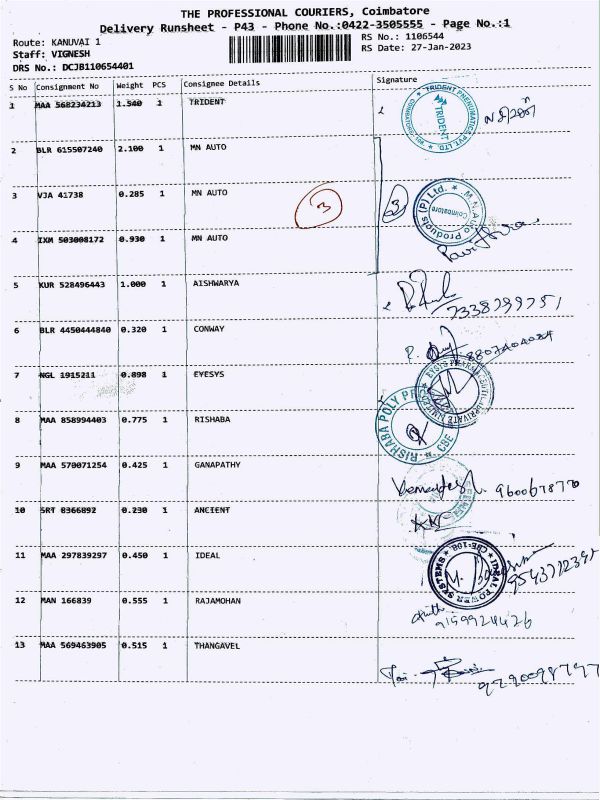 THE PROFESSIONAL COURIERS, Coimbatore
Delivery Runsheet - P43 - Phone No.:0422-3505555 - Page No.:1
Route: KANUVAI 1
RS No.: 1106544
Staff: VIGNESH
RS Date: 27-Jan-2023
DRS No.: DCJB110654401
S No Consignment No Weight PCS Consignee Details Signature
1 MAA 568234213 1.540 1 TRIDENT
TRIDENT PNEUMATICS PVT. LTD.
TRIDENT
2 BLR 615507240 2.100 1 MN AUTO
3 VJA 41738 0.285 1 MN AUTO
3
3
Products (P) Ltd.
Coimbatore
4 IXM 503008172 0.930 1 MN AUTO
5 KUR 528496443 1.000 1 AISHWARYA
7338799751
6 BLR 4450444840 0.320 1 CONWAY
8807404084
7 NGL 1915211 0.898 1 EYESYS
8 MAA 858994403 0.775 1 RISHABA
RISHABA POLY
CBE
9 MAA 570071254 0.425 1 GANAPATHY
9600678770
10 SRT 0366892 0.230 1 ANCIENT
11 MAA 297839297 0.450 1 IDEAL
IDEAL POWER SYSTEMS
CBE-108
12 MAN 166839 0.555 1 RAJAMOHAN
9159924426
13 MAA 569463905 0.515 1 THANGAVEL